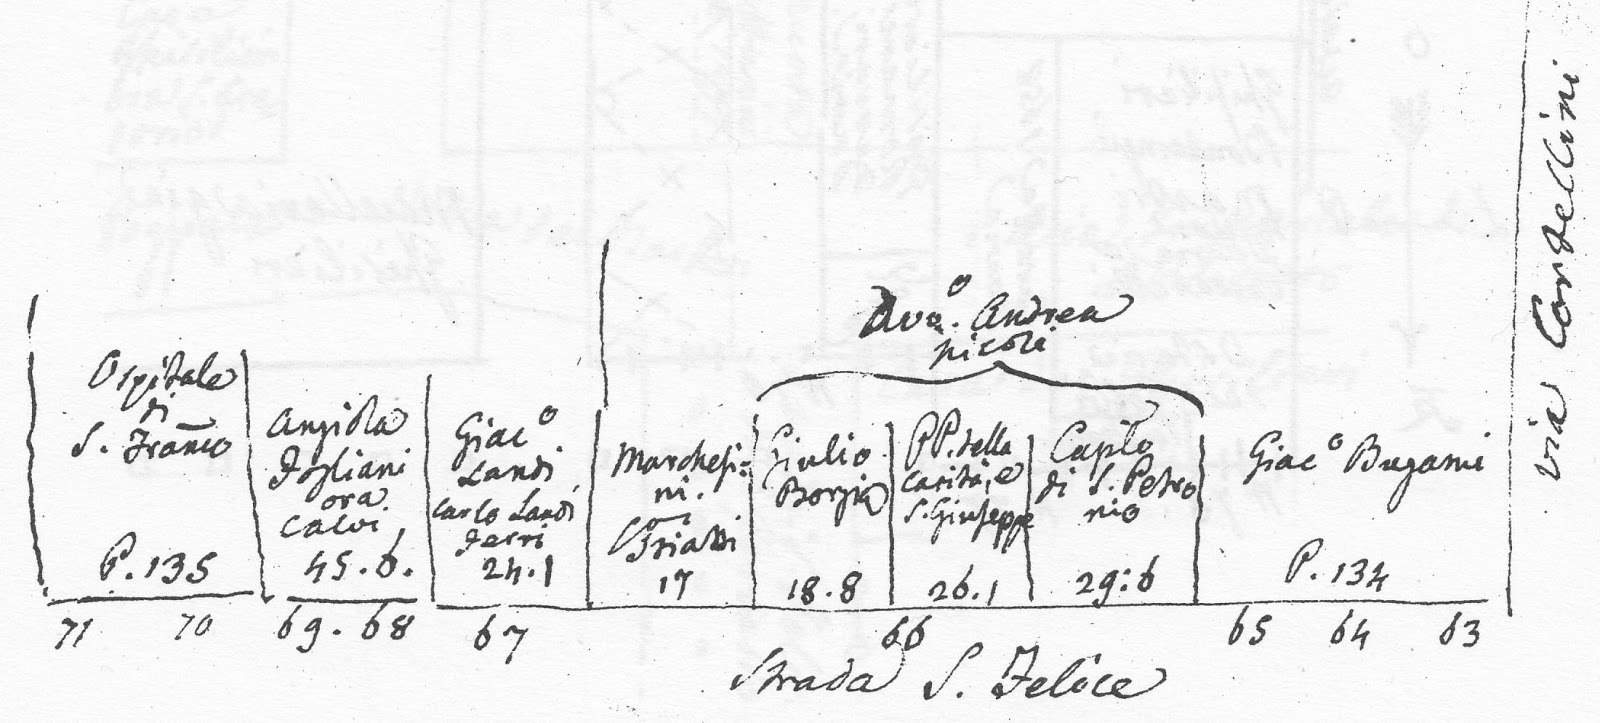 Avo. Andrea
Nicoli
Ospitale
di
S. Franco
P. 135
Angiola
Fogliani
ora
Calvi
45.6.
Giaco
Landi
Carlo Landi
Ferri
24.1
Marchesi=
ni.
17
Giulio
Borgia
18.8
PP. della
carità, e
S. Giuseppe
26.1
Capilo
di S. Petro
nio
29:6
Giaco Bugami
P. 134
71 70 69. 68 67 66 65 64 63
Strada S. Felice
via Cortellini